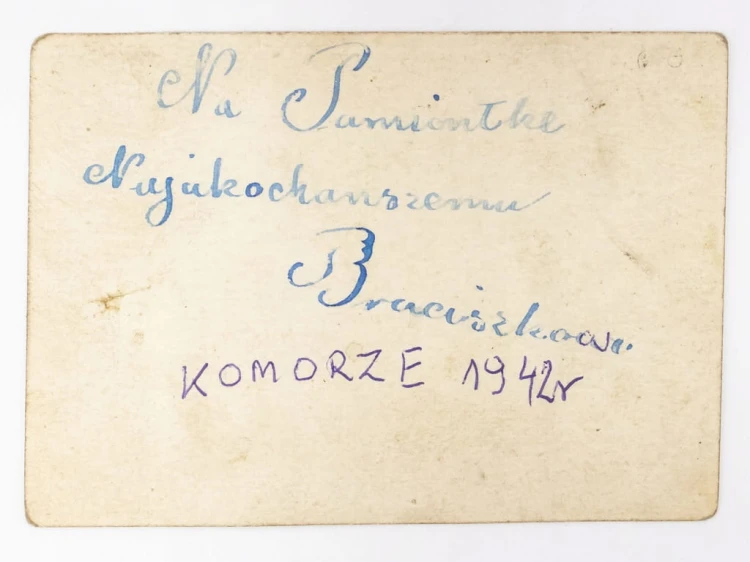 Na Pamiontke
Najukochanszemu
Braciszkowi
KOMORZE 1942r